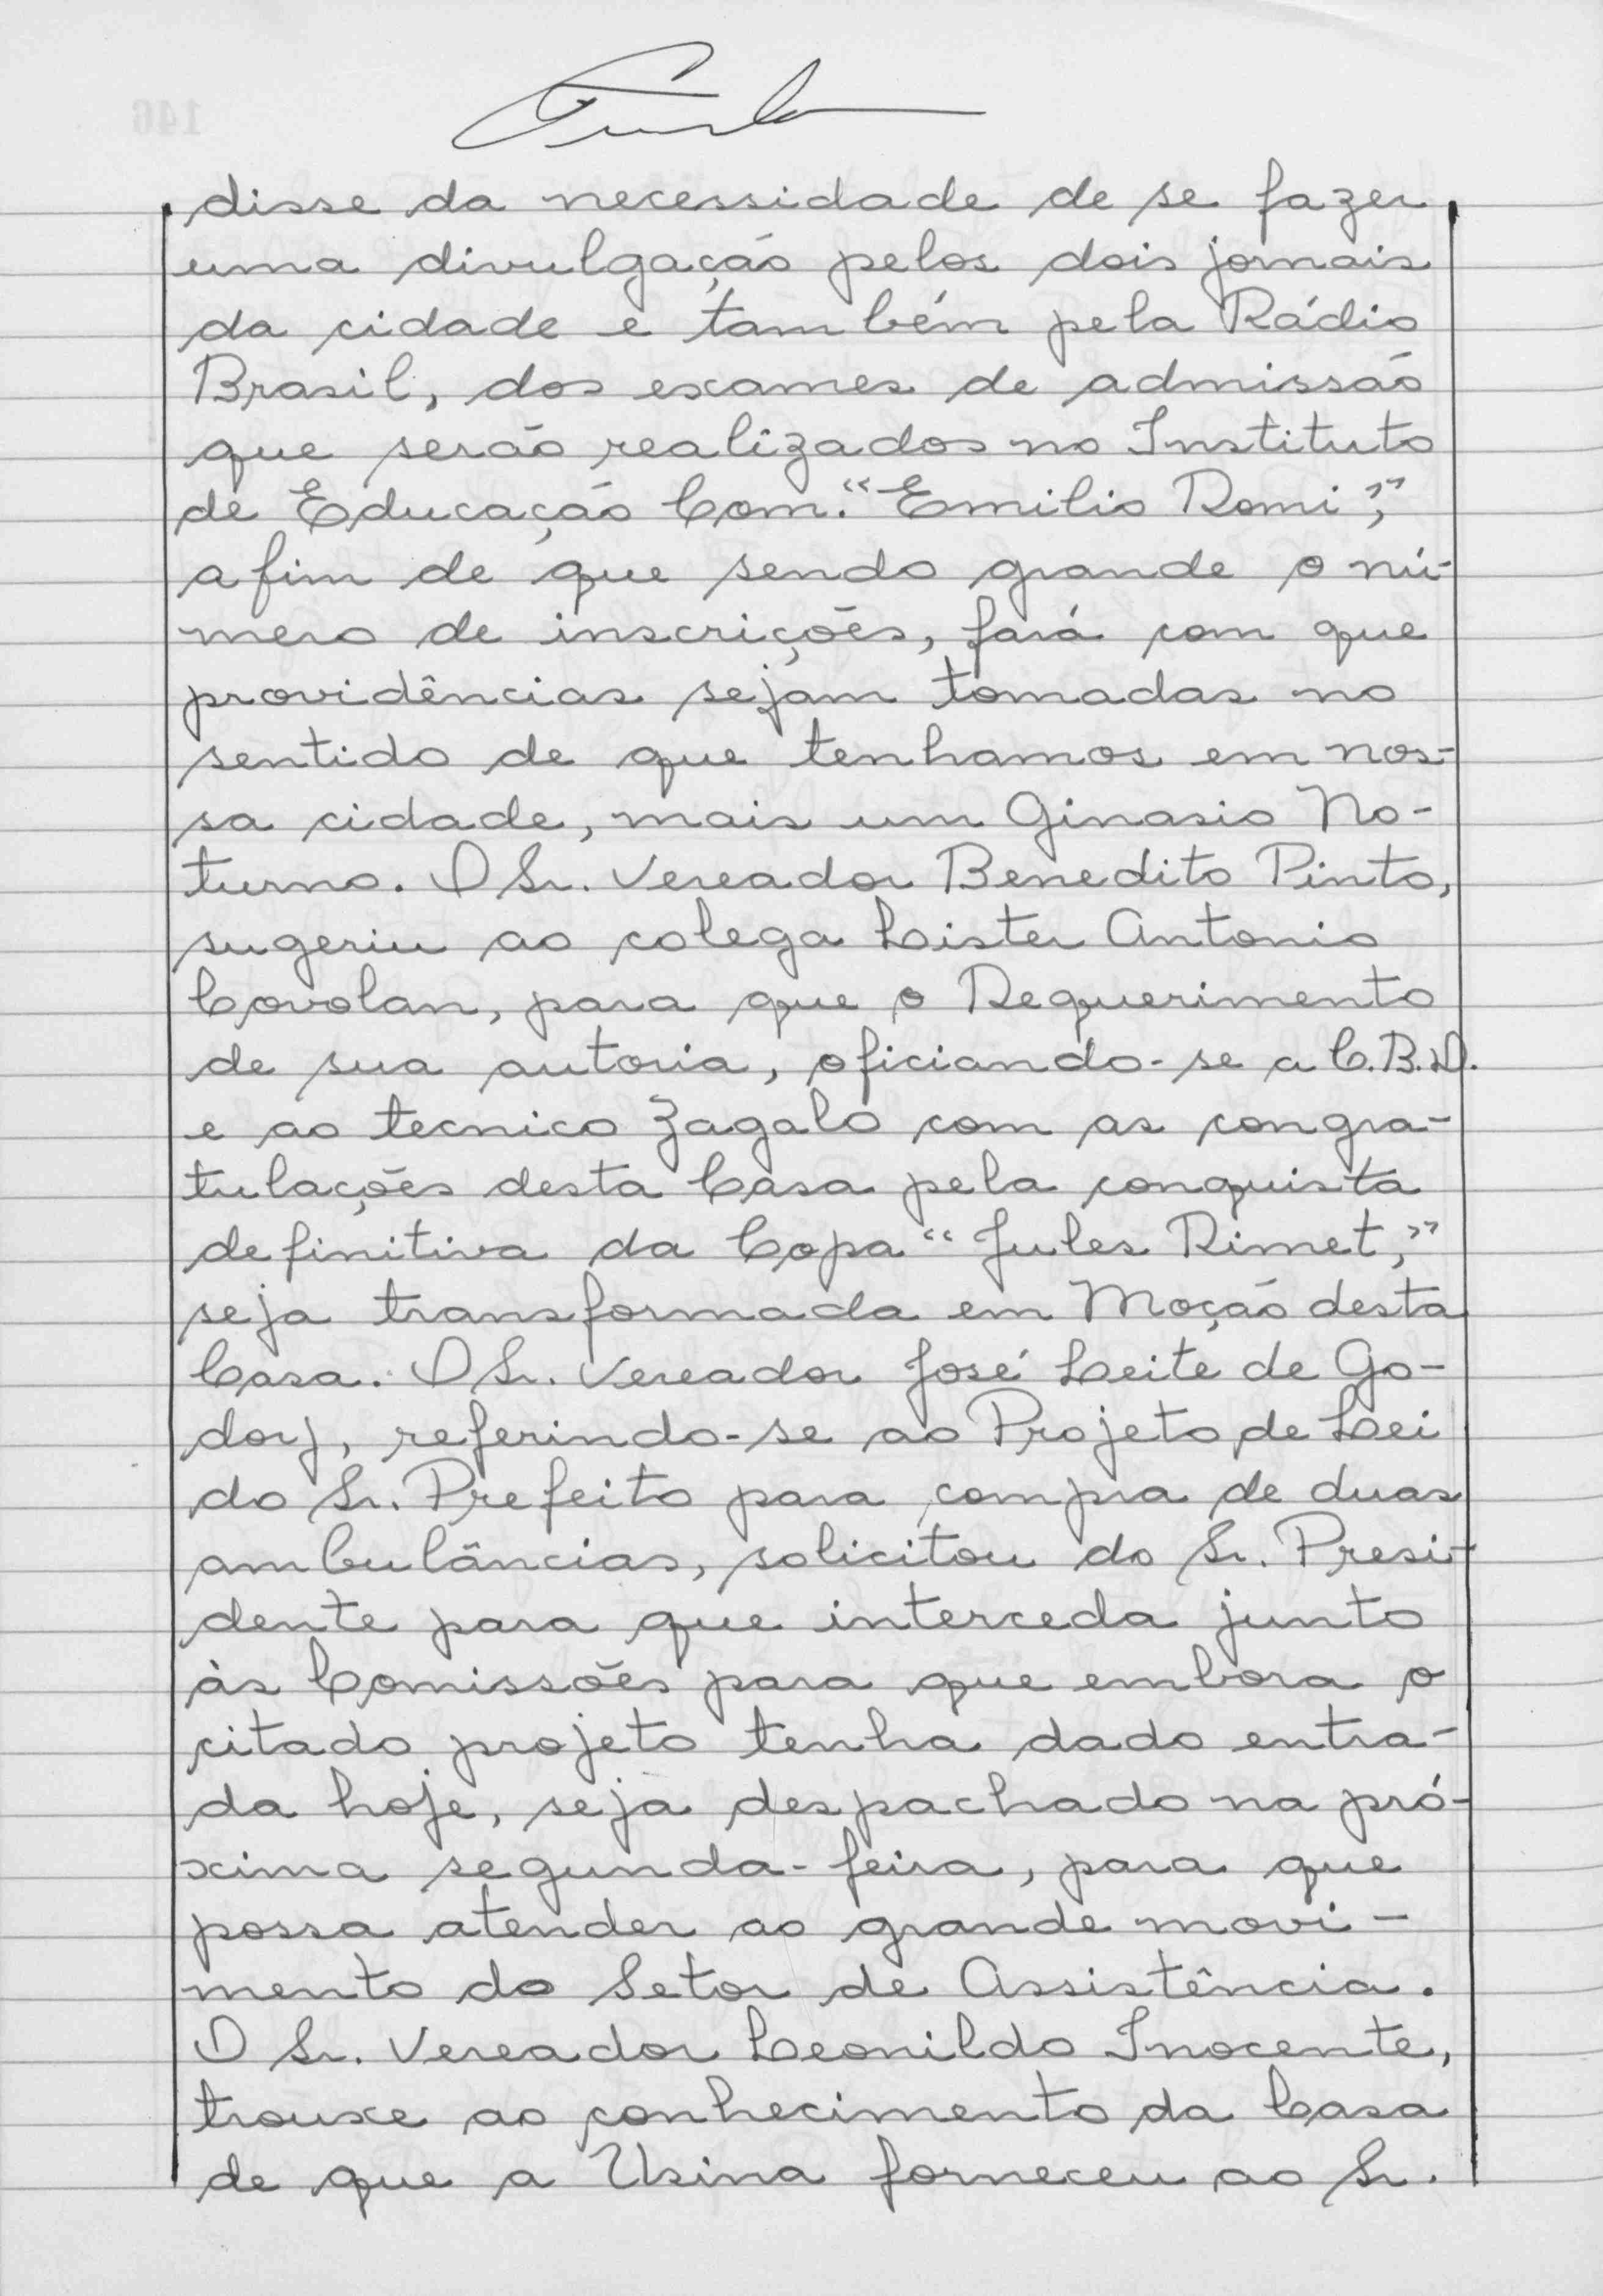 disse da necessidade de se fazer
uma divulgação pelos dois jornais
da cidade e também pela Rádio
Brasil, dos exames de admissão
que serão realizados no Instituto
de Educação Com. "Emilio Romi",
a fim de que sendo grande o nú-
mero de inscrições, fará com que
providências sejam tomadas no
sentido de que tenhamos em nos-
sa cidade, mais um Ginasio No-
turno. O Sr. Vereador Benedito Pinto,
sugeriu ao colega Lister Antonio
Covolan, para que o Requerimento
de sua autoria, oficiando-se a C.B.D.
e ao tecnico Zagalo com as congra-
tulações desta Casa pela conquista
definitiva da Copa "Jules Rimet",
seja transformada em Moção desta
Casa. O Sr. Vereador José Leite de Go-
doy, referindo-se ao Projeto de Lei
do Sr. Prefeito para compra de duas
ambulâncias, solicitou do Sr. Presi-
dente para que interceda junto
às Comissões para que embora o
citado projeto tenha dado entra-
da hoje, seja despachado na pró-
xima segunda-feira, para que
possa atender ao grande movi-
mento do Setor de Assistência.
O Sr. Vereador Leonildo Inocente,
trouxe ao conhecimento da Casa
de que a Usina forneceu ao Sr.